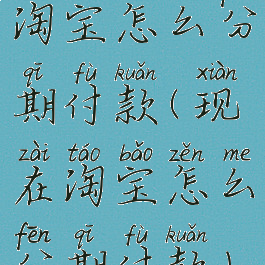 淘宝怎么分
qī fù kuǎn xiàn
期付款(现
zài táo bǎo zěn me
在淘宝怎么
fēn qī fù kuǎn
分期付款)